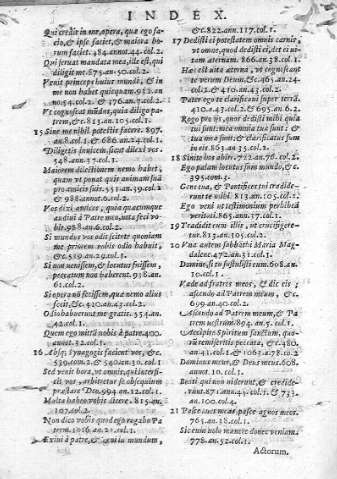 INDEX.
Qui credit in me, opera, quæ ego facio, & ipse faciet, & maiora horum faciet. 484. annot. 44. col. 2.
Qui seruat mandata mea, ille est, qui diligit me. 675. an. 50. col. 2.
Venit princeps huius mundi, & in me non habet quicquam. 912. an. no. 54. col. 2. & 376. an. 7. col. 2
Vt cognoscat mundus, quia diligo patrem, &c. 813. an. 105. col. 1.
15 Sine me nihil potestis facere. 807. an. 8. col. 1. & 686. an. 24. col. 1.
Diligatis inuicem, sicut dilexi vos. 548. ann. 37. col. 1.
Maiorem dilectionem nemo habet, quam vt ponat quis animam suã pro amicis suis. 551. an. 39. col. 2 & 988. annot. 0. col. 2.
Vos dixi amicos, quia quæcunque audiui à Patre meo, nota feci vobis. 988. an. 6. col. 2.
Si mundus vos odit scitote quoniam me priorem vobis odio habuit, &c. 519. an. 29. col. 1.
Si non venissem, & locutus fuissem, peccatum non haberent. 918. an. 61. col. 2.
Si opera nõ fecissem, quæ nemo alius fecit, &c. 420. an. 43. col. 2.
Odio habuerunt me gratis. 554. an. 42. col. 1.
Quem ego mittã vobis à patre. 400. annot. 32. col. 1.
16 Absq; synagogis facient vos, &c. 539. com. 2. & 540. an. 30. col. 1.
Sed venit hora, vt omnis, qui interficit vos, arbitretur se obsequium præstare Deo. 994. an. 12. col. 1.
Multa habeo vobis dicere. 815. an. 107. col. 2.
Non dico vobis quod ego rogabo Patrem. 1016. an. 21. col. 1.
Exiui à patre, & veni in mundum,
&c. 822. ann. 117. col. 1.
17 Dedisti ei potestatem omnis carnis, vt omne, quod dedisti ei, det ei vitam æternam. 866. an. 38. col. 1.
Hæc est vita æterna, vt cognoscant te verum Deum, &c. 463. an. 24. col. 2. & 410. an. 43. col. 2.
Pater ego te clarificaui super terrã. 410. an. 43. col. 2. & 695. an. 6. 2.
Rogo pro ijs, quos dedisti mihi quia tui sunt: mea omnia tua sunt: & tua mea sunt: & clarificatus sum in eis. 863. an. 35. col. 2.
18 Sinite hos abire. 712. an. 76. col. 2.
Ego palam locutus sum mundo, &c. 395. com. 1.
Gens tua, & Pontifices tui tradiderunt te mihi. 813. an. 105. col. 2.
Ego veni vt testimonium perhibeã veritati. 865. ann. 17. col. 1.
19 Tradidit eum illis, vt crucifigeretur. 813. an. 105. col. 2.
20 Vna autem sabbathi Maria Magdalene. 472. an. 31. col. 1.
Domine, si tu sustulisti eum. 608. an. 10. col. 1.
Vade ad fratres meos, & dic eis; ascendo ad Patrem meum, &c. 699. an. 40. col. 2.
Ascendo ad Patrem meum, & Patrem vestrum. 894. an. 5. col. 1.
Accipite Spiritum sanctum, quorum remiseritis peccata, &c. 480. an. 41. col. 1. & 1063. a. 178. co. 2
Dominus meus, & Deus meus. 608. annot. 10. col. 1.
Beati qui non viderunt, & crediderunt. 871. ann. 45. col. 1. & 733. an. 100. col. 4.
21 Pasce oues meas pasce agnos meos. 763. an. 18. col. 1.
Sic eum volo manere donec veniam. 778. an. 32. col. 1.
Actorum.